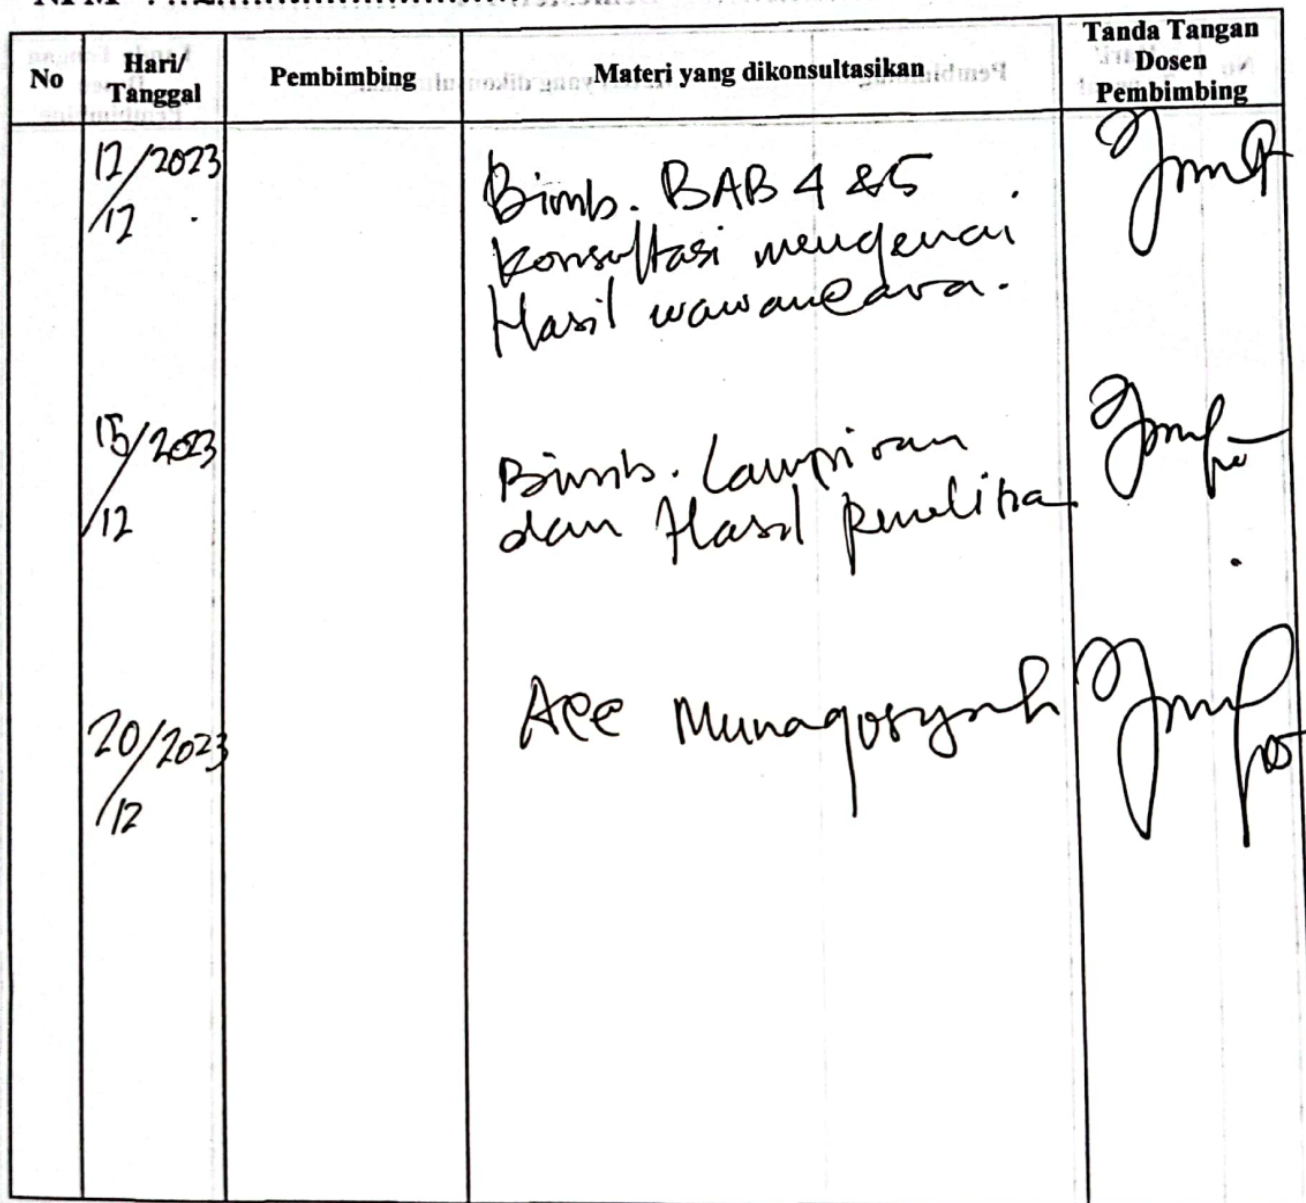 No
Hari/
Tanggal
Pembimbing
Materi yang dikonsultasikan
Tanda Tangan
Dosen
Pembimbing
12/2023
/12
Bimb. BAB 4 & 5
Konsultasi mengenai
Hasil wawancara.
15/2023
/12
Bimb. Lampiran
dan Hasil penelitia
20/2023
/12
Acc Munaqosyah